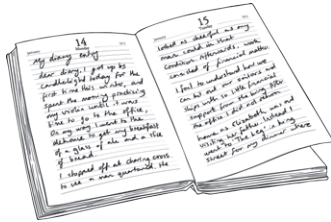 14
Monday
My diary entry
dear diary, I got up by
candlelight today for the
first time this winter, and
spent the morning practising
my violin until it was
time to go to the office.
On my way I went to the
alehouse to get my breakfast
of a glass of ale and a slice
of bread.
I stopped off at charing cross
to see a man quartered. He
15
Tuesday
looked as cheerful as any
man could in that
condition. Afterwards, work
consisted of financial matters.
I fail to understand how we
can let our sailors and
ships with so little financial
support from the king. After
the office I did not return
home as Elizabeth was out
visiting her father. Indeed I
went to 'The Leg' in King
Street for my dinner where